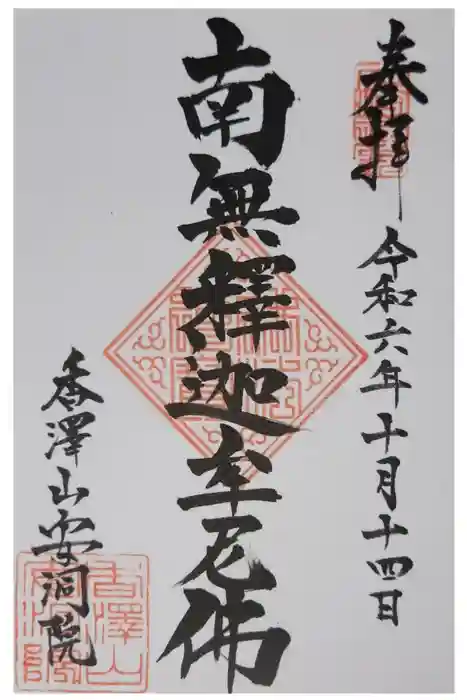 奉拝
令和六年十月十四日
南無釋迦牟尼佛
香澤山安洞院